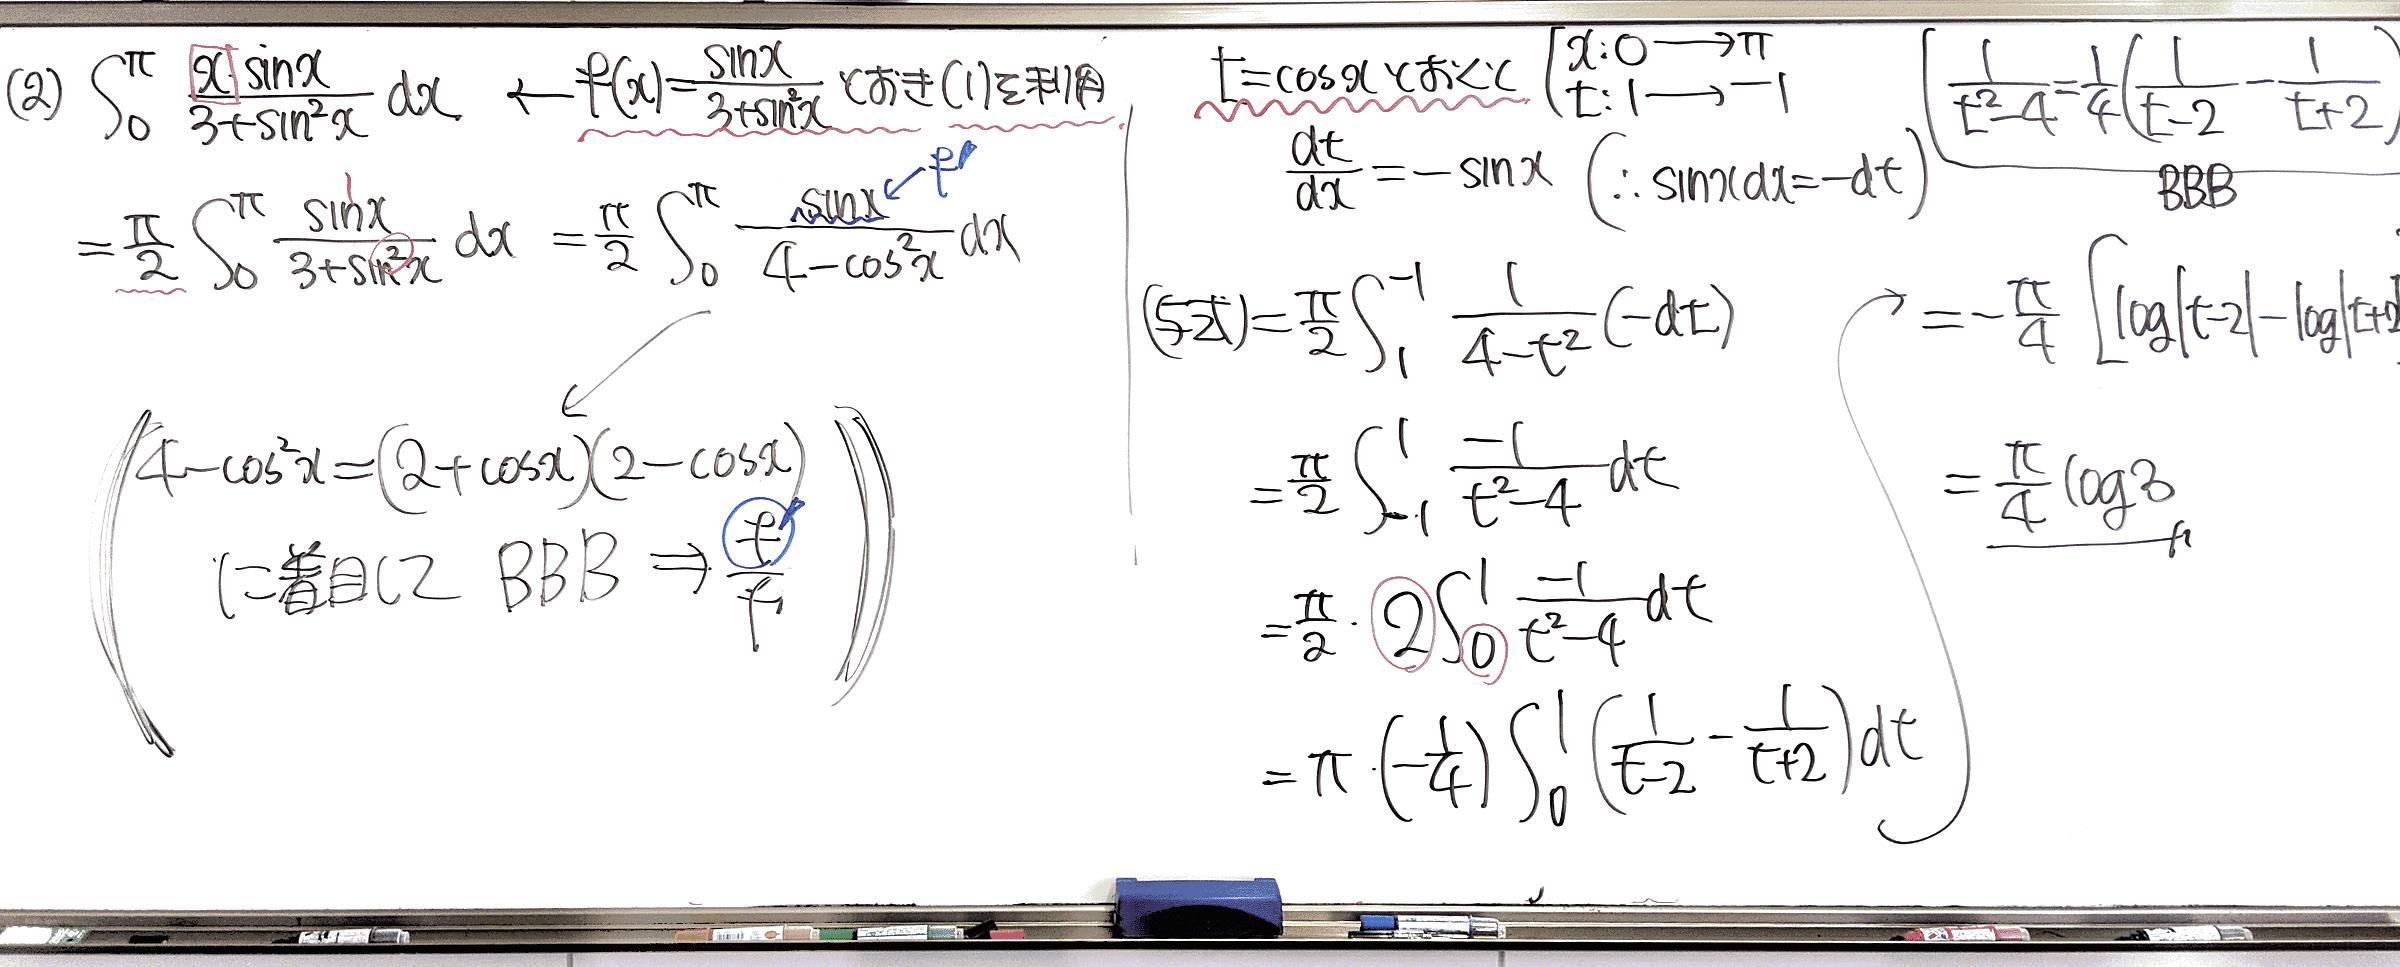 (2) ∫₀^π x·sinx/(3+sin²x) dx ← f(x)=sinx/(3+sin²x) とおき(1)を利用
=π/2 ∫₀^π sinx/(3+sin²x) dx =π/2 ∫₀^π sinx/(4-cos²x) dx ← f'
(4-cos²x=(2+cosx)(2-cosx)
に着目して BBB ⇒ f'/f)
t=cosxとおくと [x:0→π
t:1→-1
dt/dx=-sinx (∴sinxdx=-dt)
(与式)=π/2 ∫₁^-1 1/(4-t²) (-dt)
=π/2 ∫₋₁^1 -1/(t²-4) dt
=π/2·2∫₀^1 -1/(t²-4) dt
=π·(-1/4) ∫₀^1 (1/(t-2) - 1/(t+2)) dt
[1/(t²-4)=1/4(1/(t-2) - 1/(t+2))
BBB
=-π/4 [log|t-2|-log|t+2
=π/4 log3